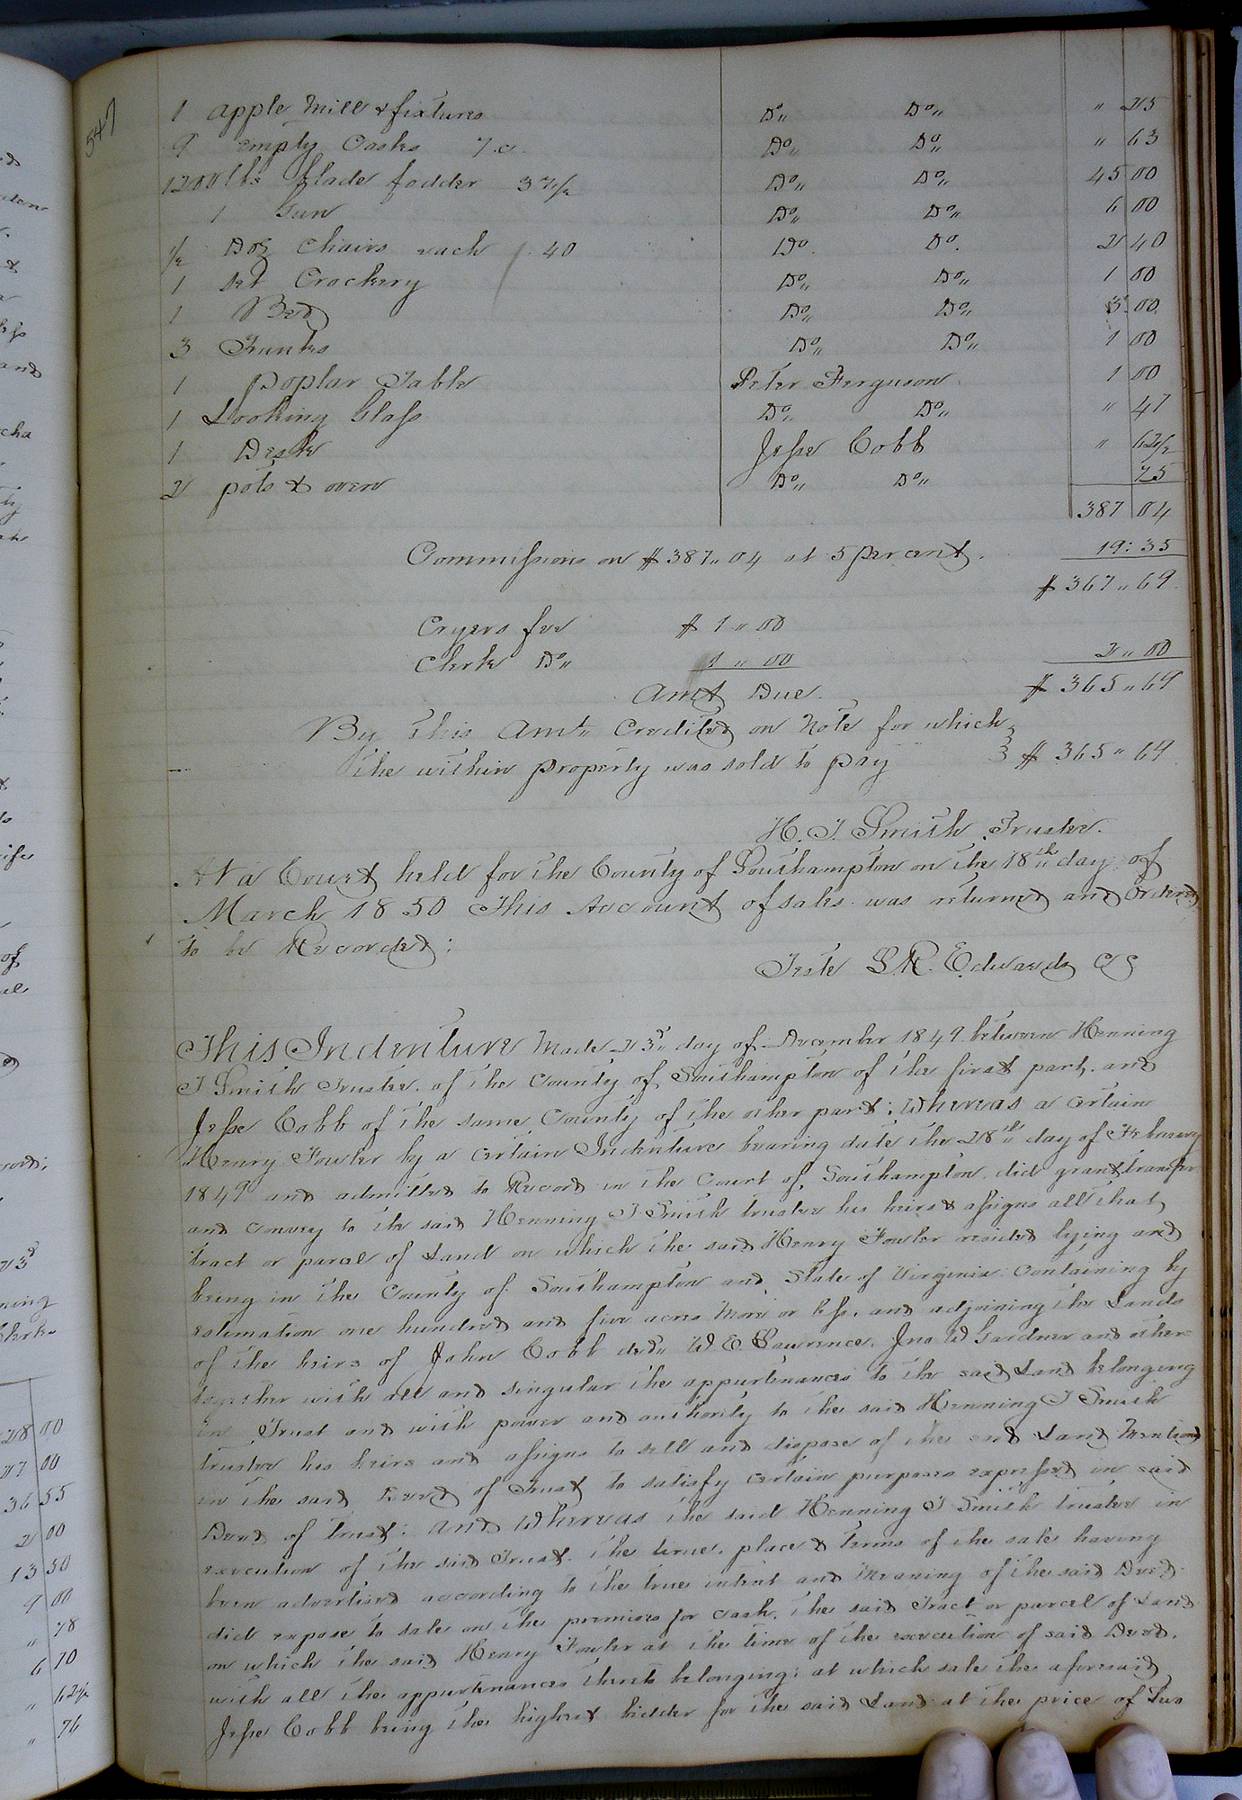 547
1 Apple Mill & fixtures Do,, Do,, " 25
9 empty Casks 7.c. Do,, Do,, " 63
1200 lbs blade fodder 37½ Do,, Do,, 45 00
1 Gun Do,, Do,, 6 00
½ Doz Chairs each 40 Do. Do. 2 40
1 set Crockery Do,, Do,, 1 00
1 Bed Do,, Do,, 3 00
3 Trunks Do,, Do,, 1 00
1 Poplar Table Peter Ferguson 1 00
1 Looking Glass Do,, Do,, " 47
1 Desk Jesse Cobb " 62½
2 pots & oven Do,, Do,, 25
387 04
Commissions on $387,,04 at 5 per cent. 19:35
$367,,69
Cryers fee $1,,00
Clerk Do,, 1,,00 2,,00
Amt Due. $365,,69
By this Amt. Credited on Note for which
the within property was sold to pay $365,,69
H. J. Smith Trustee.
At a Court held for the County of Southampton on the 18th day of
March 1850 This Account of sales was returned and Ordered
to be Recorded:
Teste L R. Edwards CC
This Indenture Made 23rd day of December 1849 between Henning
J Smith Trustee of the County of Southampton of the first part and
Jesse Cobb of the same County of the other part; Whereas a certain
Henry Fowler by a certain Indenture bearing date the 28th day of February
1849 and admitted to Record in the Court of Southampton did grant, transfer
and convey to the said Henning J Smith trustee his heirs & assigns all that
tract or parcel of Land on which the said Henry Fowler resided lying and
being in the County of Southampton and State of Virginia Containing by
estimation one hundred and five acres more or less, and adjoining the Lands
of the heirs of John Cobb decd,, W. E Lawrence, Jno W Gardner and others
together with all and singular the appurtenances to the said Land belonging
in Trust and with power and authority to the said Henning J Smith
trustee his heirs and assigns to sell and dispose of the said Land Mentioned
in the said Deed of Trust to satisfy certain purposes expressed in said
Deed of trust: and Whereas the said Henning J Smith trustee in
execution of the said Trust. the time, place & terms of the sale having
been advertised according to the true intent and Meaning of the said Deed.
did expose to sale on the premises for cash. the said Tract or parcel of Land
on which the said Henry Fowler at the time of the execution of said Deed.
with all the appurtenances thereto belonging; at which sale the aforesaid
Jesse Cobb being the highest bidder for the said Land at the price of Two
28 00
27 00
36 55
2 00
13 50
9 00
" 78
6 70
" 62½
" 76